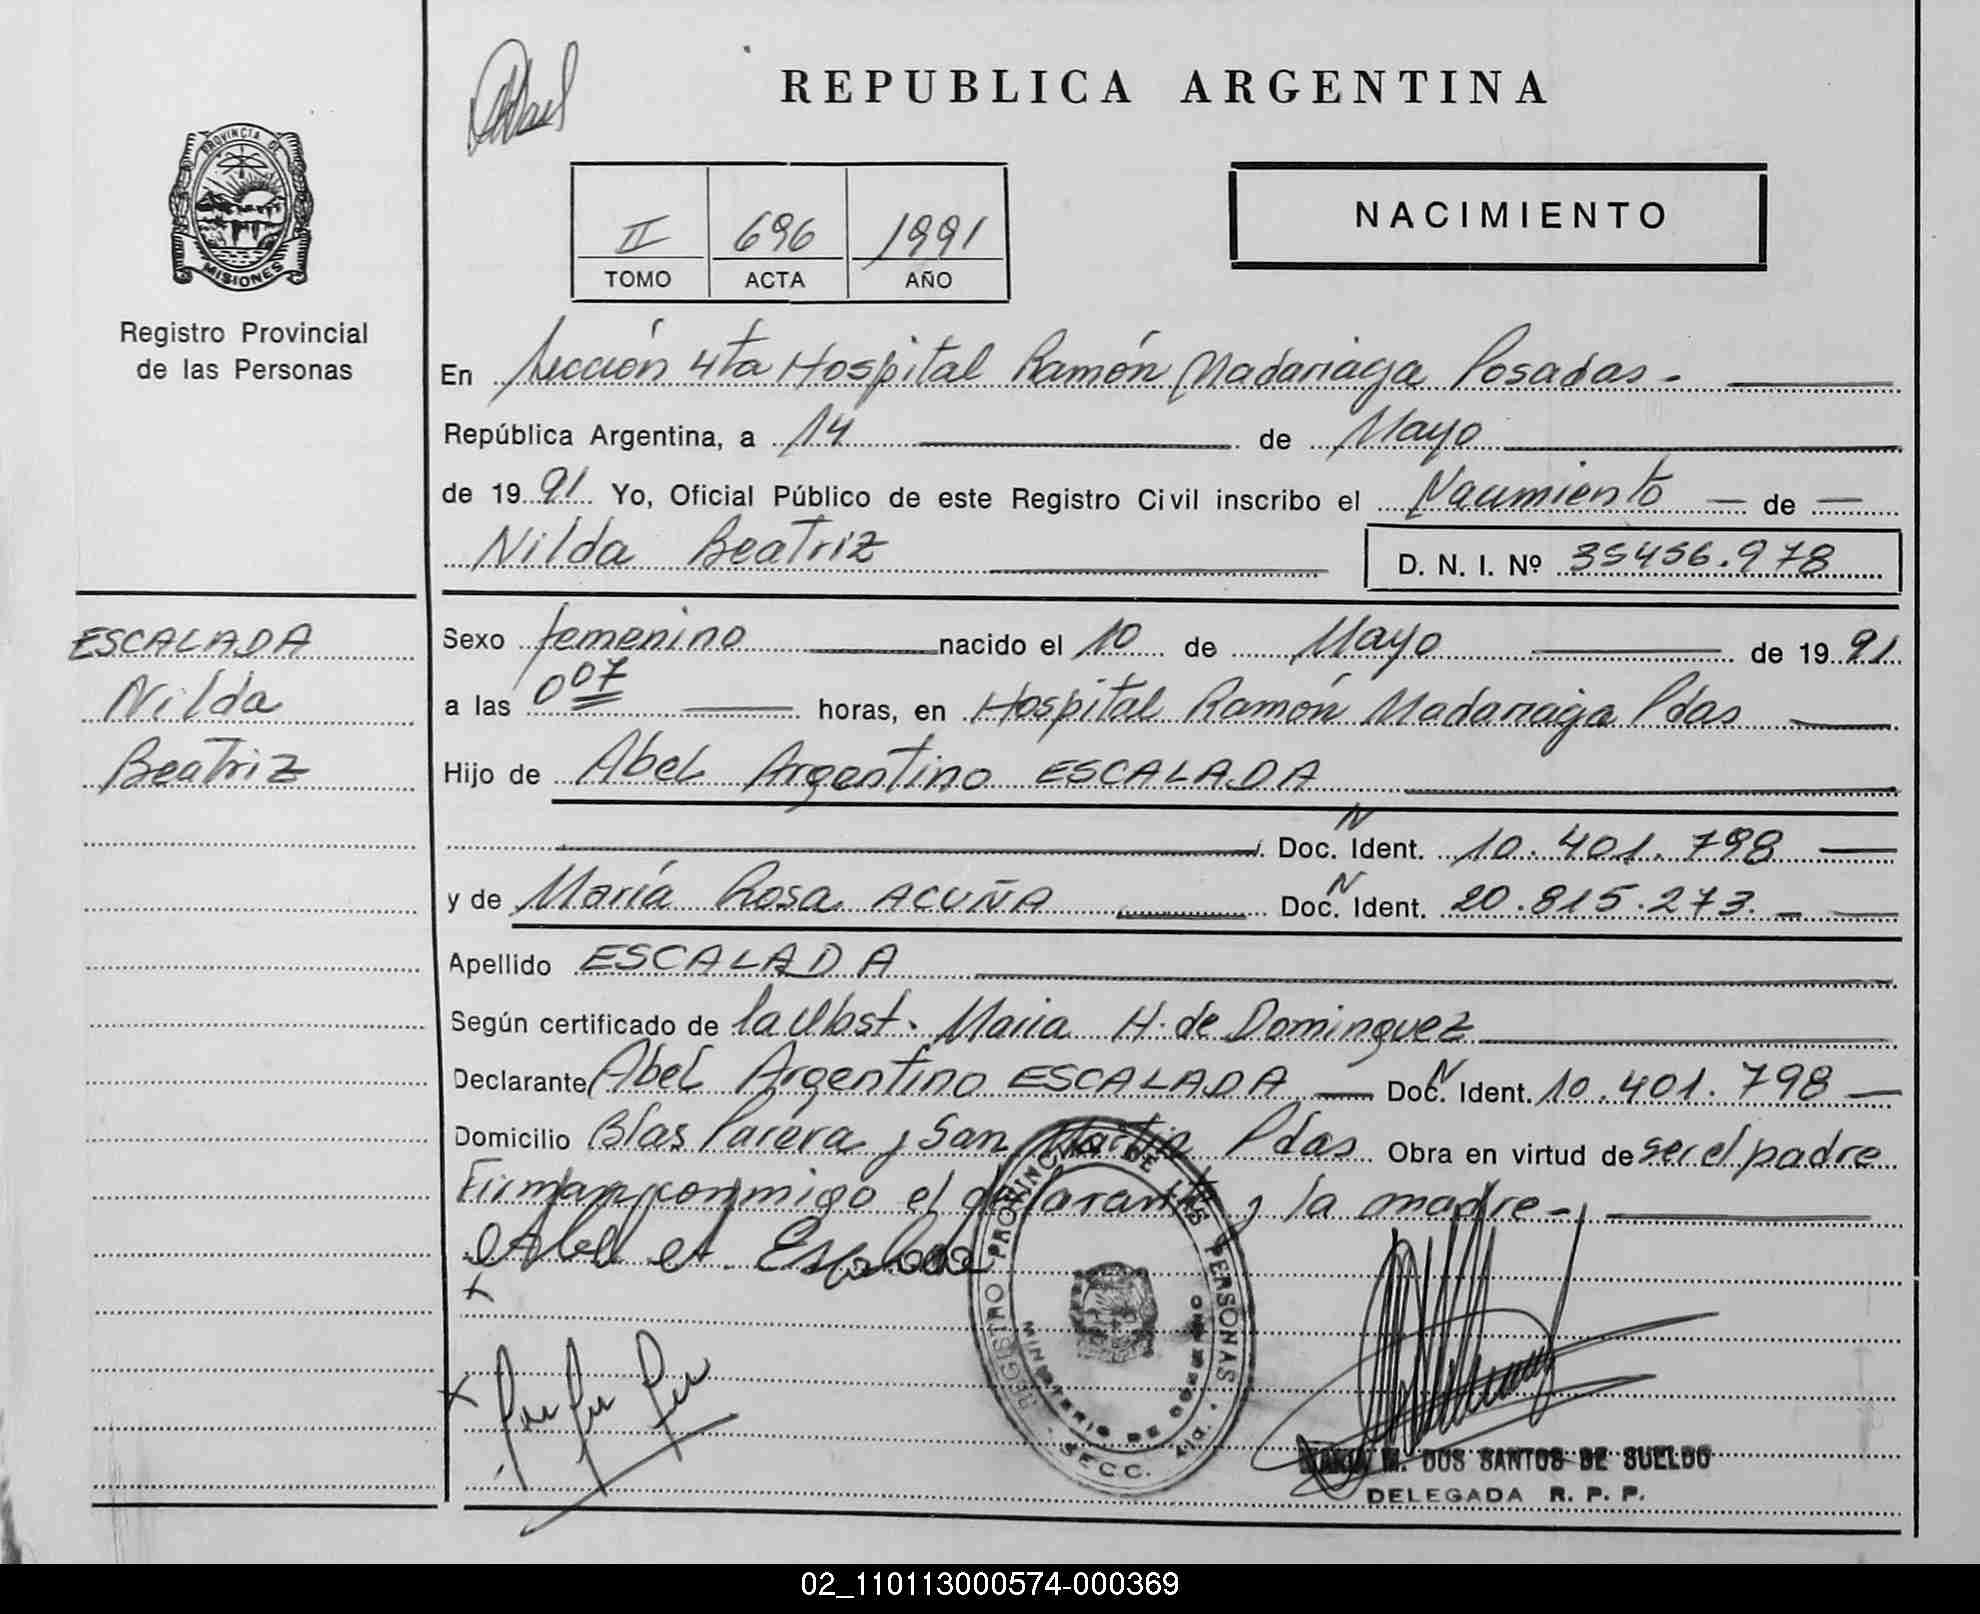 REPUBLICA ARGENTINA
PROVINCIA DE
MISIONES
Registro Provincial
de las Personas
II 696 1991
TOMO ACTA AÑO
NACIMIENTO
En Sección 4ta Hospital Ramón Madariaga Posadas.-
República Argentina, a 14 de Mayo
de 1991 Yo, Oficial Público de este Registro Civil inscribo el Nacimiento de
Nilda Beatriz
D. N. I. Nº 35456.978
ESCALADA
Nilda
Beatriz
Sexo femenino nacido el 10 de Mayo de 1991
a las 007 horas, en Hospital Ramón Madariaga Pdas
Hijo de Abel Argentino ESCALADA
Doc. N Ident. 10.401.798
y de María Rosa ACUÑA Doc. N Ident. 20.815.273.-
Apellido ESCALADA
Según certificado de la Obst. Maria H. de Dominguez
Declarante Abel Argentino ESCALADA Doc. N Ident. 10.401.798
Domicilio Blas Parera y San Martin Pdas Obra en virtud de ser el padre
Firman conmigo el declarante y la madre-
Abel A. Escalada
REGISTRO PROVINCIAL DE LAS PERSONAS
MINISTERIO DE GOBIERNO
SECC. 4ta.
MARIA M. DOS SANTOS DE SUELDO
DELEGADA R. P. P.
02_110113000574-000369